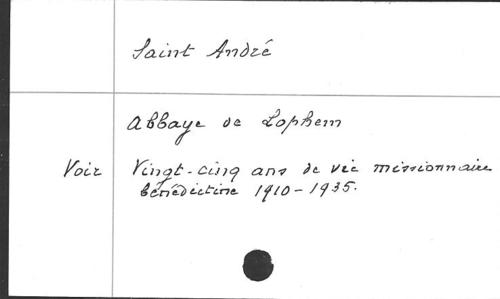 Saint André
Abbaye de Lophem
Voir Vingt-cinq ans de vie missionnaire
bénédictine 1910-1935.